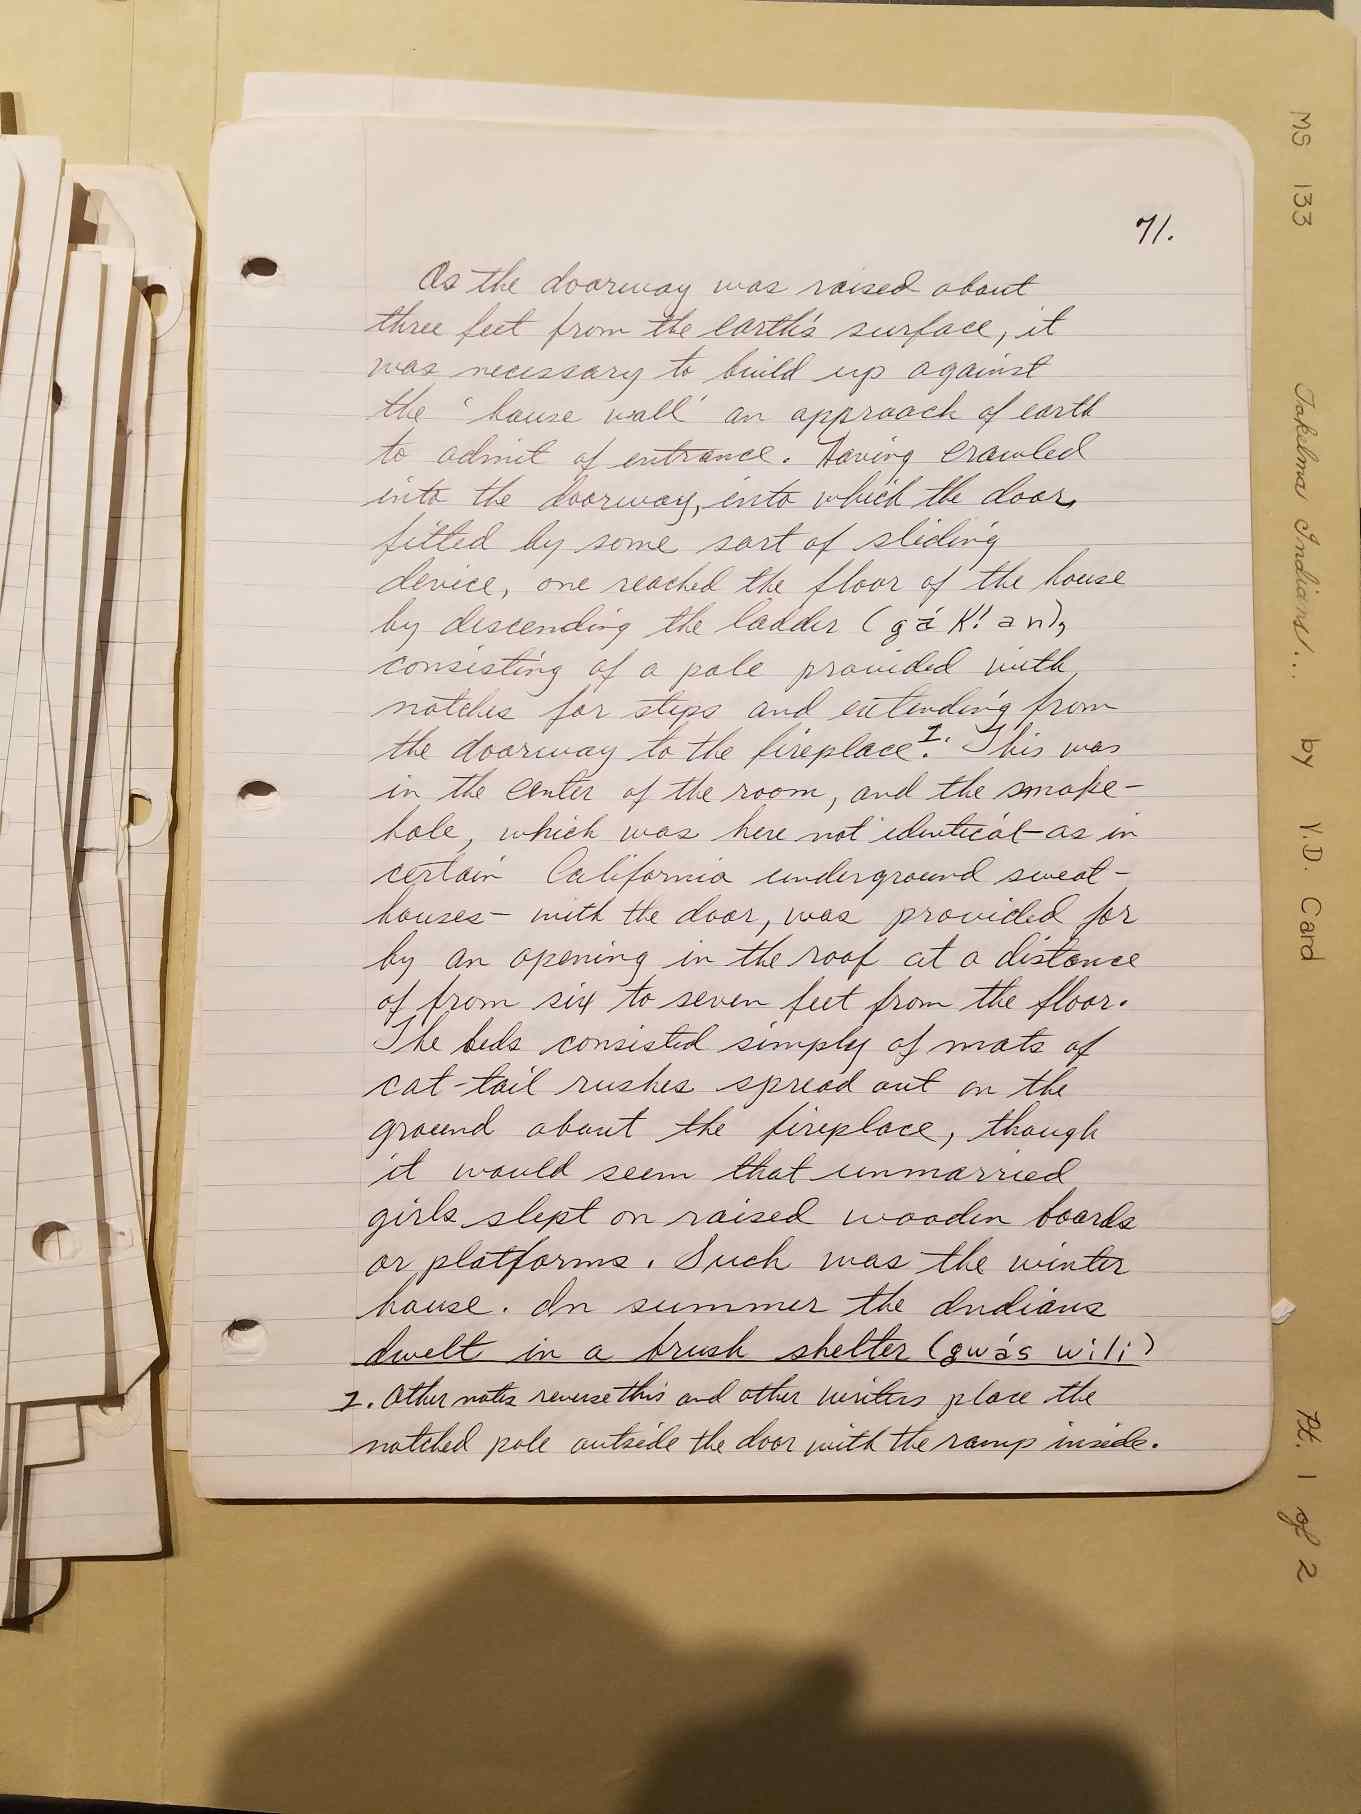 71.
As the doorway was raised about
three feet from the earth's surface, it
was necessary to build up against
the 'house wall' an approach of earth
to admit of entrance. Having crawled
into the doorway, into which the door,
fitted by some sort of sliding
device, one reached the floor of the house
by descending the ladder (gā́ K! an),
consisting of a pole provided with
notches for steps and extending from
the doorway to the fireplace.1. This was
in the center of the room, and the smoke-
hole, which was here not identical-as in
certain California underground sweat-
houses- with the door, was provided for
by an opening in the roof at a distance
of from six to seven feet from the floor.
The beds consisted simply of mats of
cat-tail rushes spread out on the
ground about the fireplace, though
it would seem that unmarried
girls slept on raised wooden boards
or platforms. Such was the winter
house. In summer the Indians
dwelt in a brush shelter (gwás wili)
1. Other notes reverse this and other writers place the
notched pole outside the door with the ramp inside.
MS 133 Takelma Indians... by Y.D. Card Pt. 1 of 2